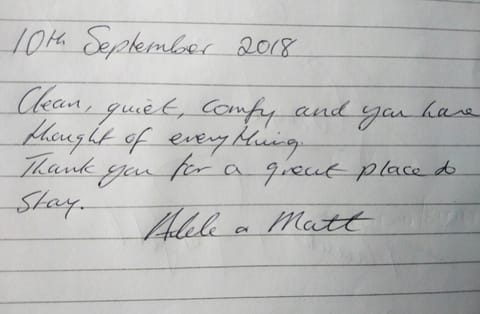 10th September 2018
Clean, quiet, comfy and you have
thought of everything.
Thank you for a great place to
stay.
Adele & Matt